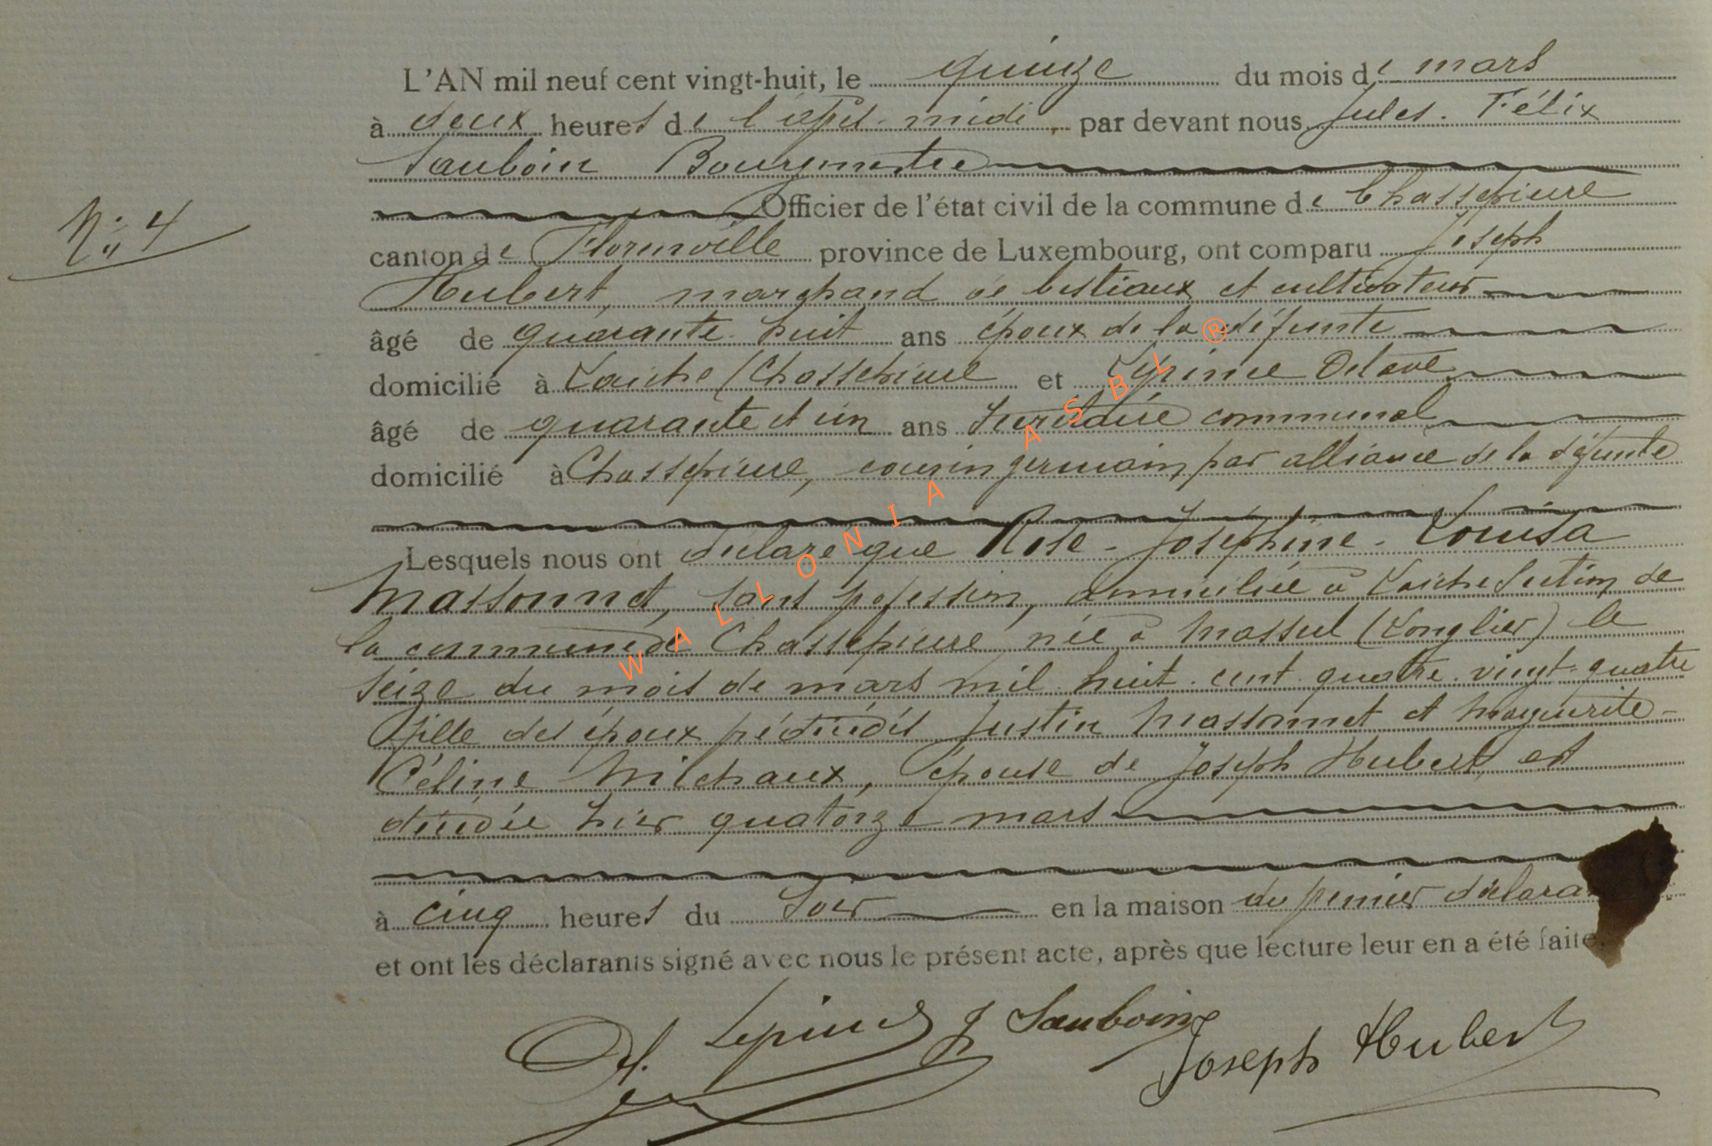 L'AN mil neuf cent vingt-huit, le quinze du mois de mars
à deux heures de l'après-midi, par devant nous Jules-Félix
Sauboin Bourgmestre
Officier de l'état civil de la commune de Chassepierre
Nº 4
canton de Florenville province de Luxembourg, ont comparu Joseph
Hubert, marchand de bestiaux et cultivateur
âgé de quarante-huit ans époux de la défunte
domicilié à Laiche (Chassepierre et Lepine Octave
âgé de quarante et un ans Secrétaire communal
domicilié à Chassepierre, cousin germain par alliance de la défunte
Lesquels nous ont déclaré que Rose-Joséphine-Louisa
Massonnet, sans profession, domiciliée à Laiche Section de
la commune de Chassepierre née à Massul (Longlier) le
seize du mois de mars mil huit cent quatre-vingt-quatre
fille des époux décédés Justin Massonnet et Marguerite-
Céline Michaux, épouse de Joseph Hubert, est
décédée hier quatorze mars
à cinq heures du soir en la maison du premier déclara
et ont les déclarants signé avec nous le présent acte, après que lecture leur en a été faite.
Lepine J Sauboin
Joseph Hubert
WALLONIA ASBL ®